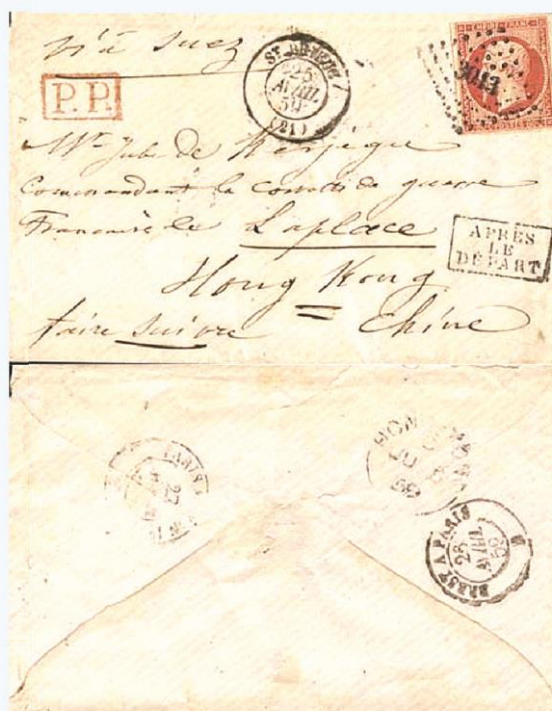 viâ Suez
ST BRIEUC
25
AVRIL
59
(21)
EMPIRE FRANC
P.P.
Mr Jules de Kerjégu
Commandant la corvette de guerre
Française le Laplace
APRÈS
LE
DÉPART
Hong Kong
faire suivre Chine
PARIS
27
HON
JU
59
BREST A PARIS
26
AVRIL
59